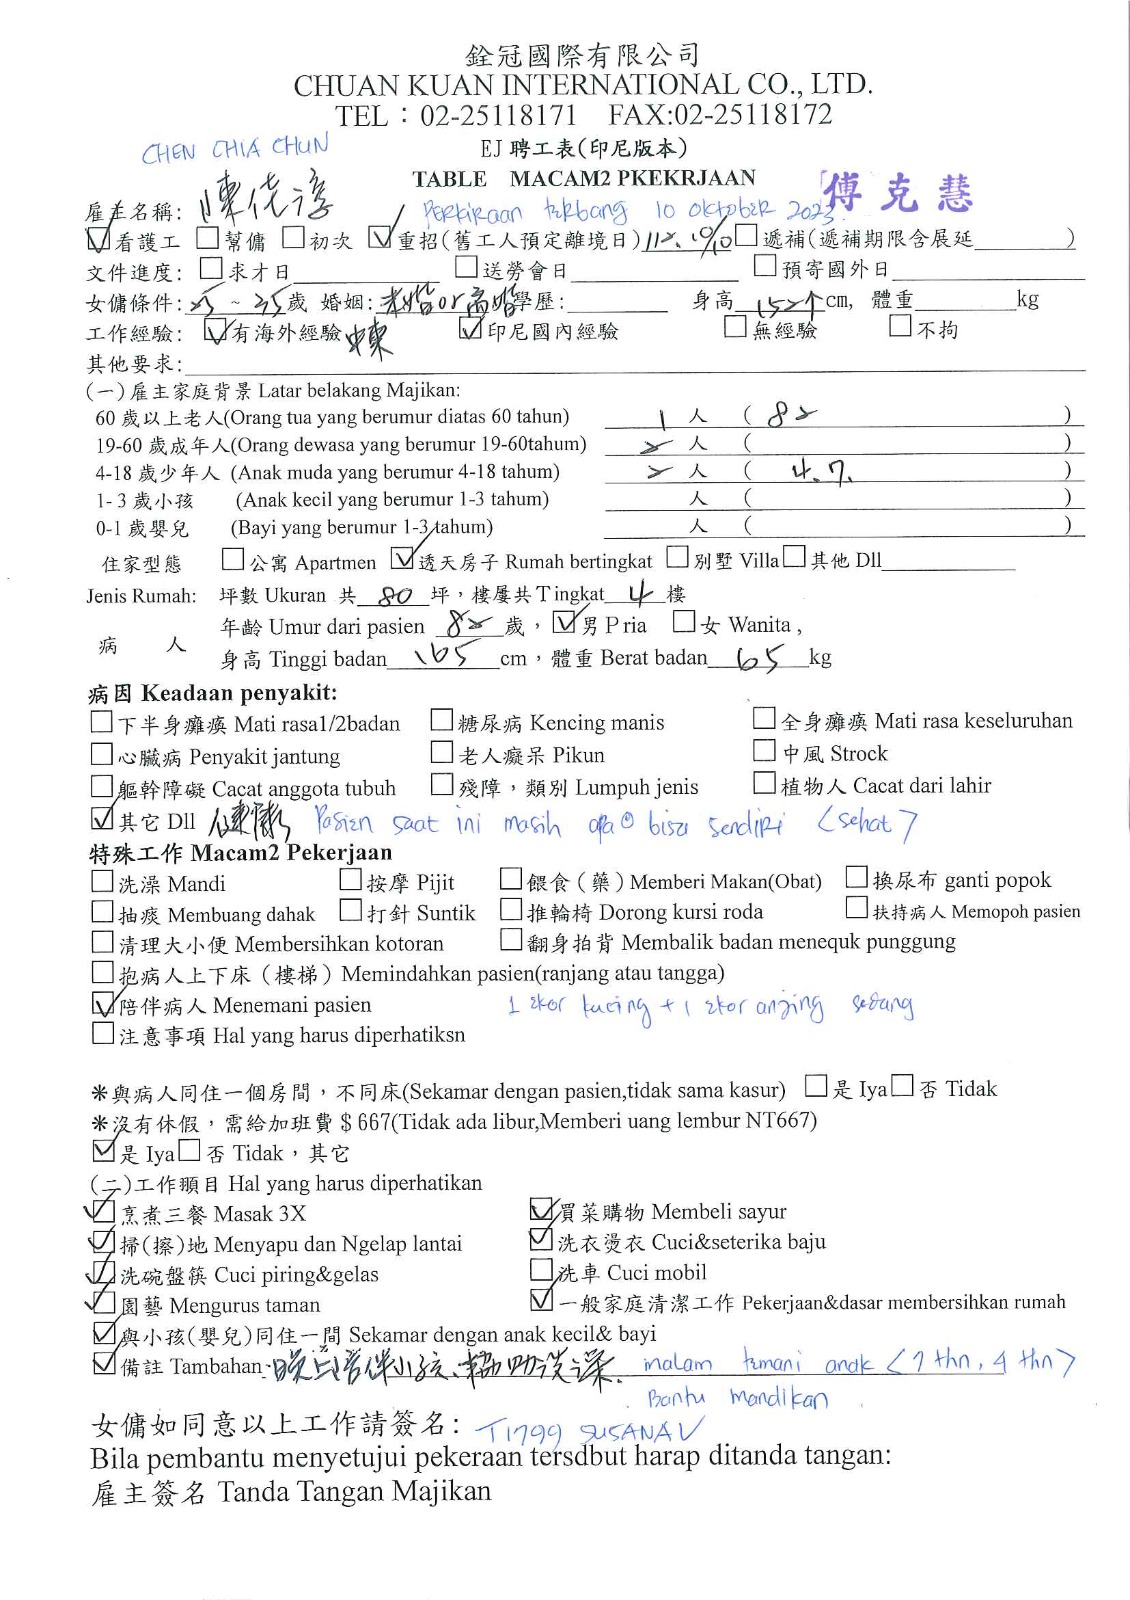 銓冠國際有限公司
CHUAN KUAN INTERNATIONAL CO., LTD.
TEL：02-25118171 FAX:02-25118172
CHEN CHIA CHUN
EJ 聘工表(印尼版本)
TABLE MACAM2 PKEKRJAAN
傅克慧
雇主名稱: 陳佳淳 Perkiraan terbang 10 oktober 2023
☑看護工 ☐幫傭 ☐初次 ☑重招(舊工人預定離境日) 112.10/10 ☐遞補(遞補期限含展延________)
文件進度: ☐求才日 ☐送勞會日 ☐預寄國外日
女傭條件: 25 ~ 35 歲 婚姻: 未婚 or 離婚 學歷: 身高 152↑ cm, 體重 kg
工作經驗: ☑有海外經驗 中東 ☑印尼國內經驗 ☐無經驗 ☐不拘
其他要求:
(一)雇主家庭背景 Latar belakang Majikan:
60 歲以上老人(Orang tua yang berumur diatas 60 tahun) 1 人 ( 82 )
19-60 歲成年人(Orang dewasa yang berumur 19-60tahum) 2 人 ( )
4-18 歲少年人 (Anak muda yang berumur 4-18 tahum) 2 人 ( 4.7. )
1- 3 歲小孩 (Anak kecil yang berumur 1-3 tahum) 人 ( )
0-1 歲嬰兒 (Bayi yang berumur 1-3 tahum) 人 ( )
住家型態 ☐公寓 Apartmen ☑透天房子 Rumah bertingkat ☐別墅 Villa ☐其他 Dll
Jenis Rumah: 坪數 Ukuran 共 80 坪，樓屢共Tingkat 4 樓
年齡 Umur dari pasien 82 歲，☑男 Pria ☐女 Wanita ,
病 人
身高 Tinggi badan 165 cm，體重 Berat badan 65 kg
病因 Keadaan penyakit:
☐下半身癱瘓 Mati rasa1/2badan ☐糖尿病 Kencing manis ☐全身癱瘓 Mati rasa keseluruhan
☐心臟病 Penyakit jantung ☐老人癡呆 Pikun ☐中風 Strock
☐軀幹障礙 Cacat anggota tubuh ☐殘障，類別 Lumpuh jenis ☐植物人 Cacat dari lahir
☑其它 Dll Pasien saat ini masih apa² bisa sendiri (sehat)
特殊工作 Macam2 Pekerjaan
☐洗澡 Mandi ☐按摩 Pijit ☐餵食(藥) Memberi Makan(Obat) ☐換尿布 ganti popok
☐抽痰 Membuang dahak ☐打針 Suntik ☐推輪椅 Dorong kursi roda ☐扶持病人 Memopoh pasien
☐清理大小便 Membersihkan kotoran ☐翻身拍背 Membalik badan menequk punggung
☐抱病人上下床(樓梯) Memindahkan pasien(ranjang atau tangga)
☑陪伴病人 Menemani pasien 1 ekor kucing + 1 ekor anjing sedang
☐注意事項 Hal yang harus diperhatiksn
＊與病人同住一個房間，不同床(Sekamar dengan pasien,tidak sama kasur) ☐是 Iya☐否 Tidak
＊沒有休假，需給加班費＄667(Tidak ada libur,Memberi uang lembur NT667)
☑是 Iya☐否 Tidak，其它
(二)工作項目 Hal yang harus diperhatikan
☑烹煮三餐 Masak 3X ☑買菜購物 Membeli sayur
☑掃(擦)地 Menyapu dan Ngelap lantai ☑洗衣燙衣 Cuci&seterika baju
☑洗碗盤筷 Cuci piring&gelas ☐洗車 Cuci mobil
☑園藝 Mengurus taman ☑一般家庭清潔工作 Pekerjaan&dasar membersihkan rumah
☑與小孩(嬰兒)同住一間 Sekamar dengan anak kecil& bayi
☑備註 Tambahan: 晚上陪伴小孩、輔助洗澡. malam temani anak (7 thn, 4 thn)
Bantu mandikan
女傭如同意以上工作請簽名: T1799 SUSANAV
Bila pembantu menyetujui pekeraan tersdbut harap ditanda tangan:
雇主簽名 Tanda Tangan Majikan